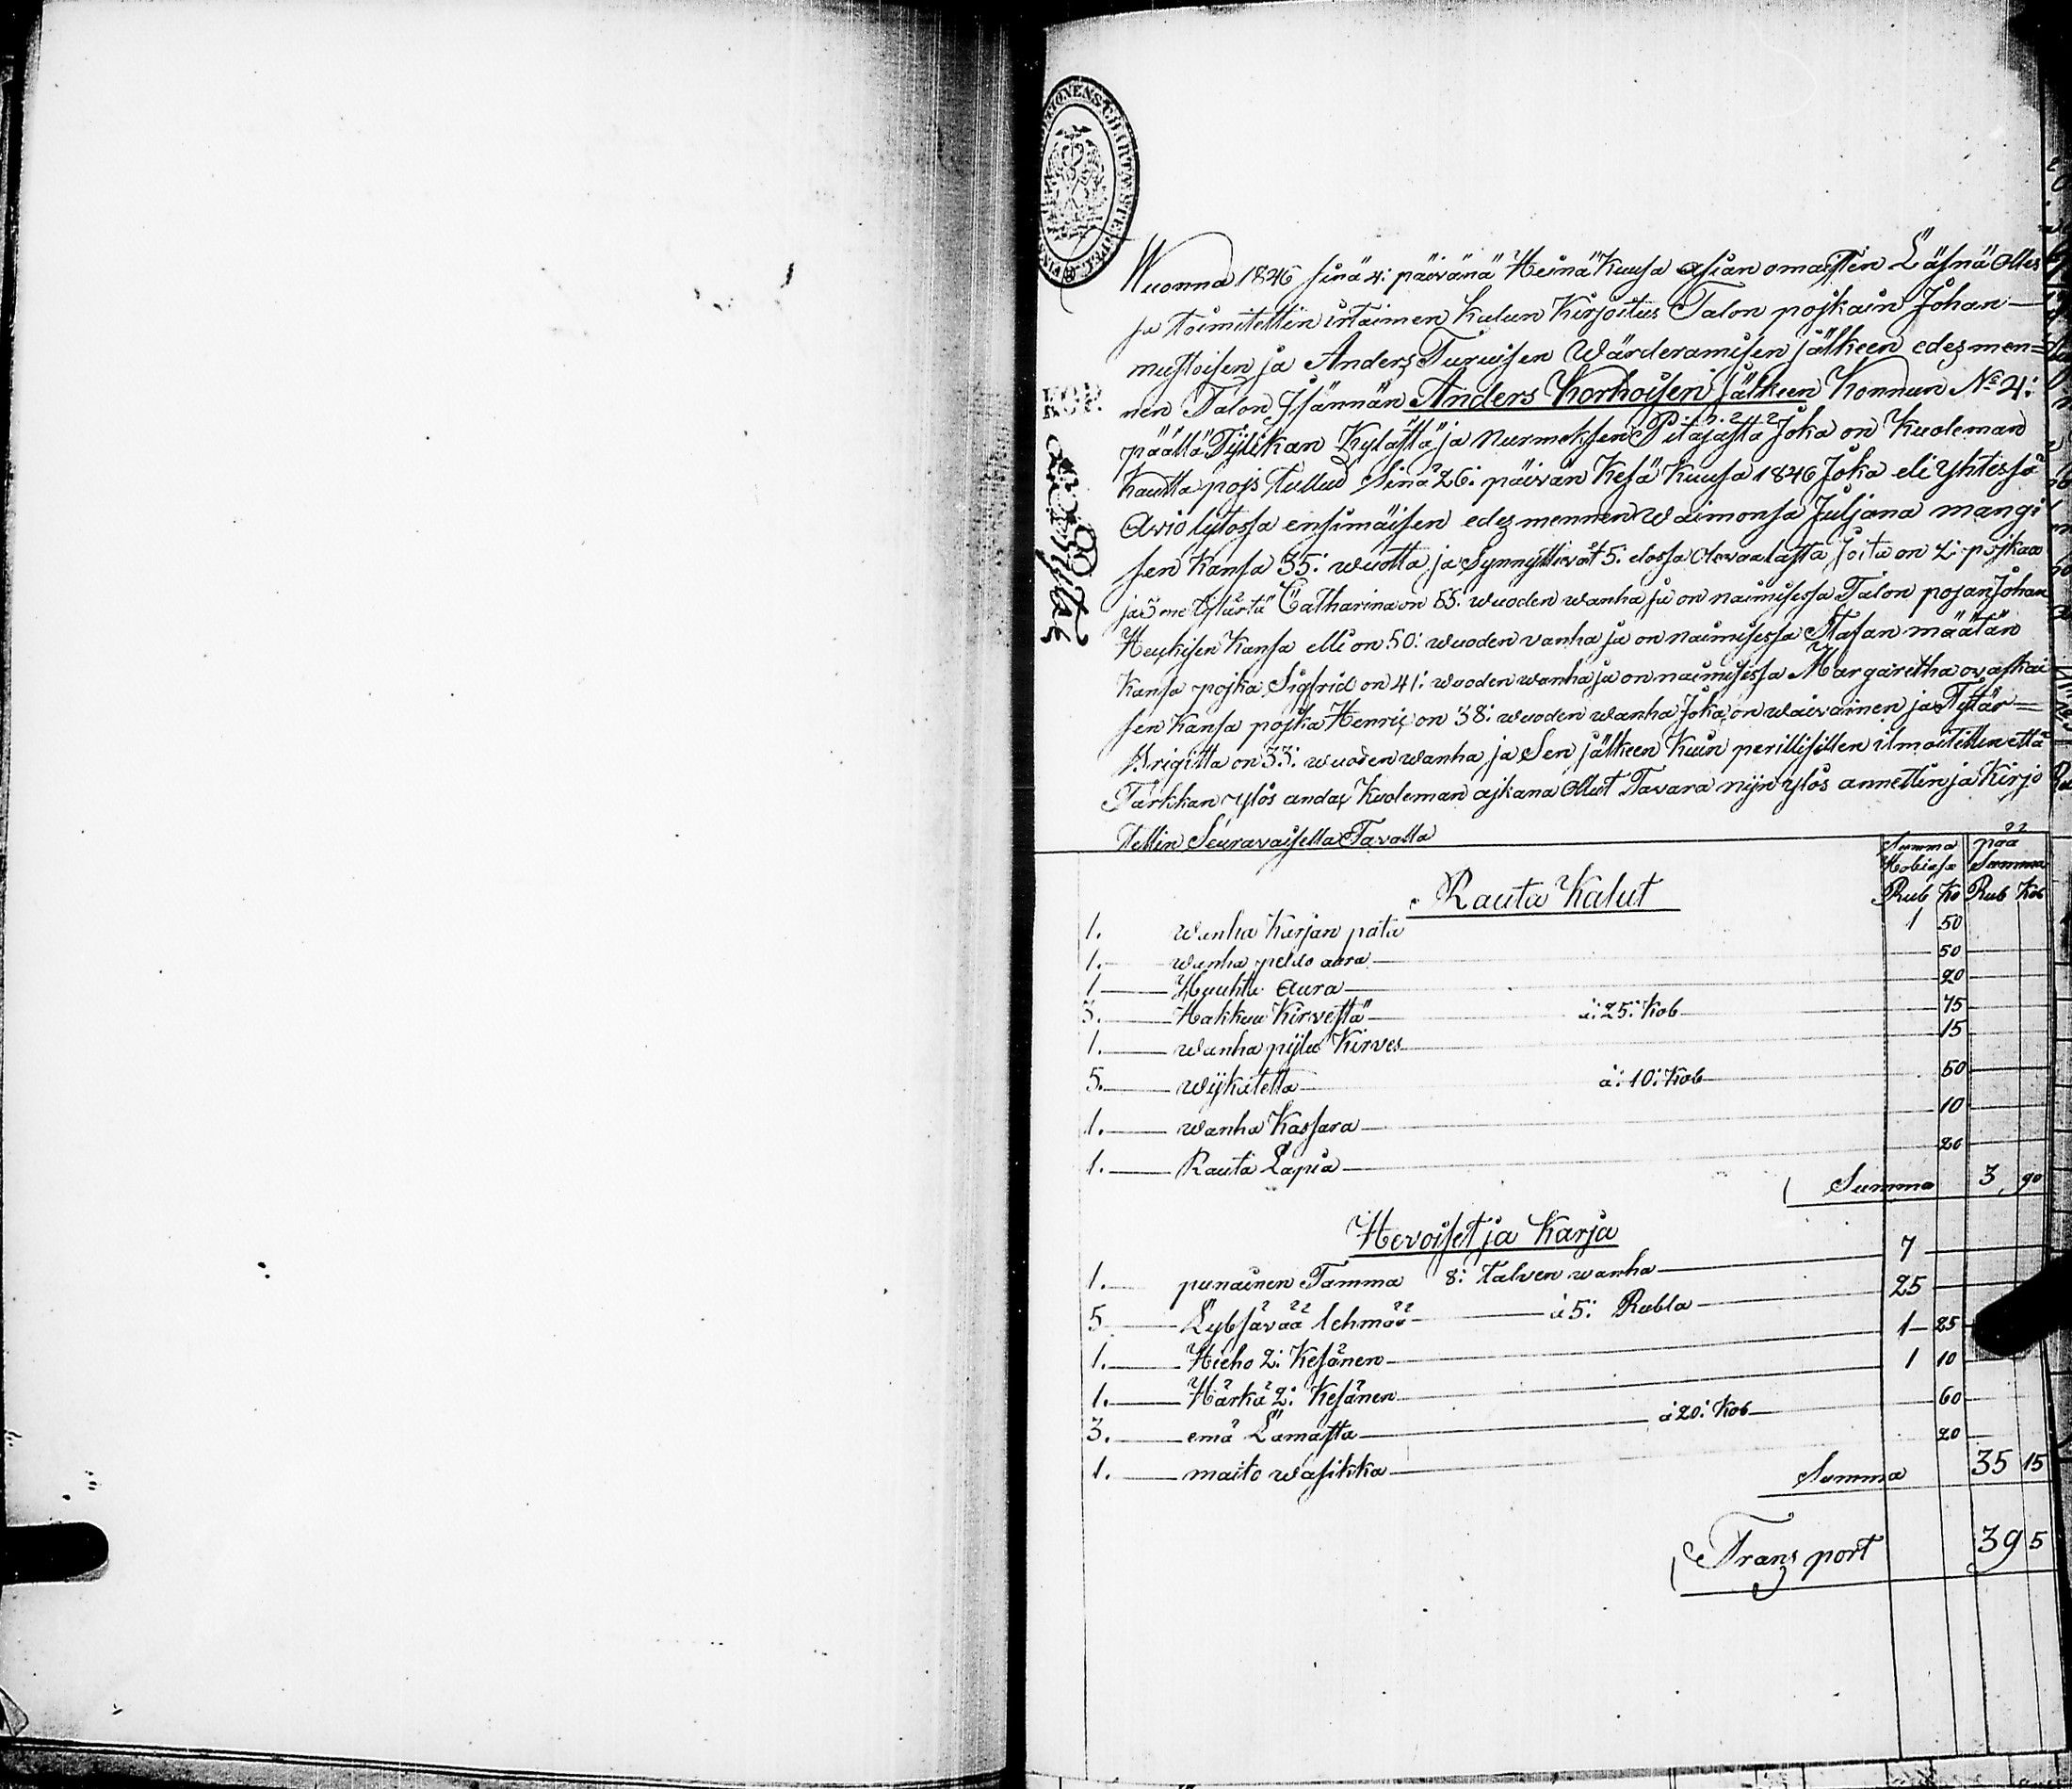 Wuonna 1846 sinä 4: päivänä Heinä Kuusa asian omaisten Läsnä Olles
sa toimitettin irtaimen kalun Kirjoitus Talon pojkain Johan
mustoisen ja Anders Turuisen Wärderamisen jälkeen edesmen=
nen Talon Isännän Anders Korhoisen jälkeen Konnun No 4:
päältä Kylästä ja Nurmeksen Pitäjästä Joka on Kuoleman
kautta pojs tullud Sinä 26: päivän Kesä Kuusa 1846 Joka eli yhtessä
Avio lytossa ensimäisen edes mennen Waimonsa Juljana mangi
sen kansa 35: wuotta ja Synnyttivät 5: elossa Olevaa lasta joita on 2: pojkaa
ja 3 me tytärtä Catharina on 55: wuoden wanha ja on naimisessa Talon pojan Johan
Heiskisen kansa elli on 50: wuoden vanha ja on naimisessa Stafan määtän
kansa pojka Sigfrid on 41: wuoden wanha ja on naimisessa Margaretha ovaskai
sen kansa pojka Henric on 38: wuoden wanha Joka on waivainen ja Tytär=
Brigitta on 33: wuoden wanha ja Sen jälkeen Kuin perillisillen ilmoitettin että
Tarkkan ylös andaa Kuoleman ajkana Ollut Tavara nijn ylös annettin ja Kirjo
tettin Seuravaisella Tavalla
Summa Hobiasa pää Summa
Rub Ko Rub Kob
Rauta Kalut
1. wanha Karjan pata 1 50
1. wanha peldo aura 50
1 Huuhta Aura 20
3. Hakkuu Kirvestä à: 25: Kob 75
1. wanha pijlu Kirves 15
5. wijkatetta à: 10: Kob 50
1. wanha Kassara 10
1. Rauta Lapia 20
Summa 3 90
Hevoiset ja Karja
1. punainen Tamma 8: talven wanha 7
5 Lybsävää lehmää à 5: Rubla 25
1. Hieho 2: Kesänen 1 25
1. Härkä 2: Kesänen 1 10
3. emä Lamasta à 20: Kob 60
1. maito wasikka 20
Summa 35 15
Transport 39 5